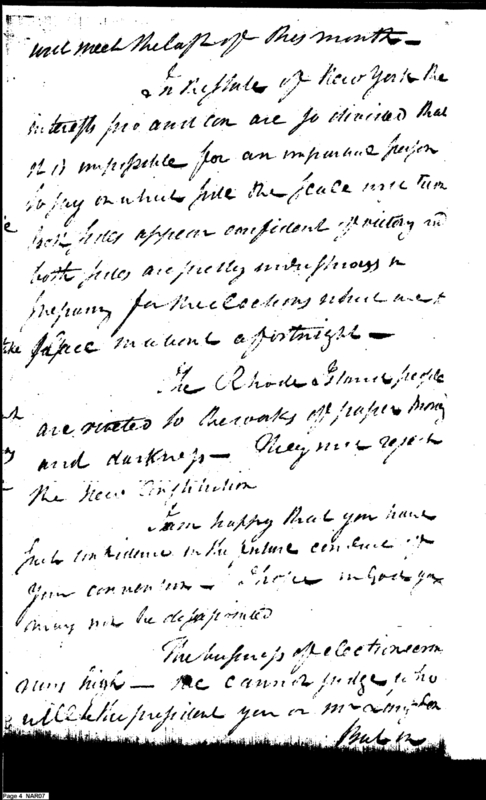 will meet the last of this month —
In the State of New York the
interests pro and con are so divided that
it is impossible for an important person
to say on which side the scale will turn
both sides appear confident of victory and
both sides are pretty industrious in
preparing for the elections which are to
take place in about a fortnight —
The Rhode Island people
are riveted to the works of paper money
and darkness — They will reject
the New Constitution
I am happy that you have
such confidence in the future conduct of
your convention — I hope in God you
may not be disappointed
The business of electioneering
runs high — we cannot judge who
will be the president you or
But in
Page 4 NAR07